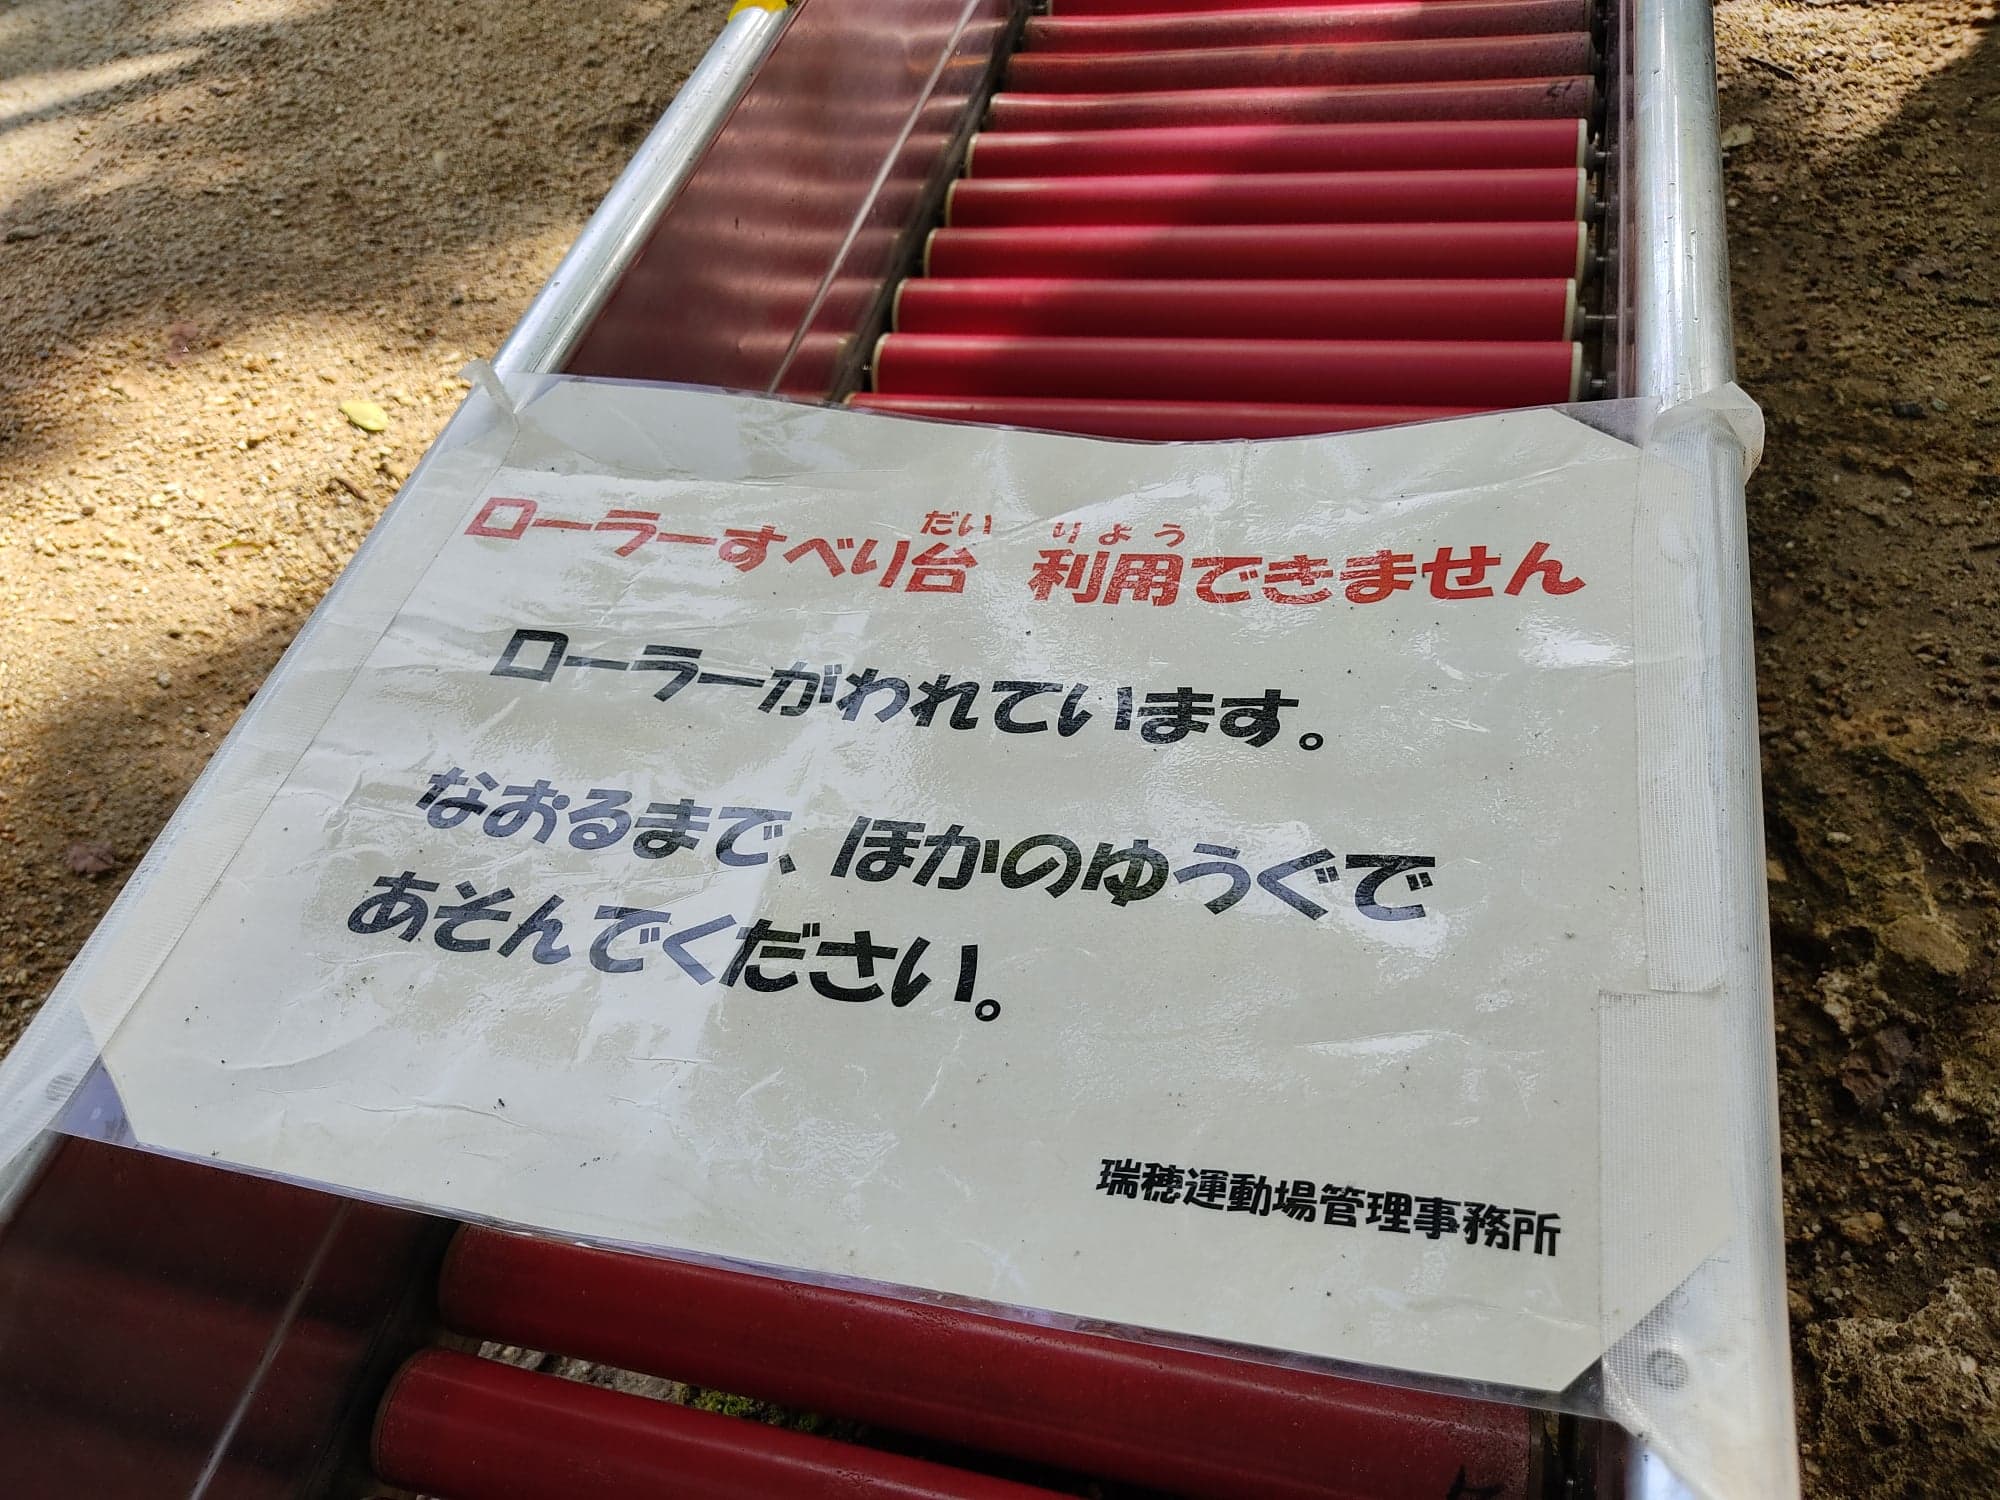 ローラーすべり台 利用できません
だい りよう
ローラーがわれています。
なおるまで、ほかのゆうぐで
あそんでください。
瑞穂運動場管理事務所